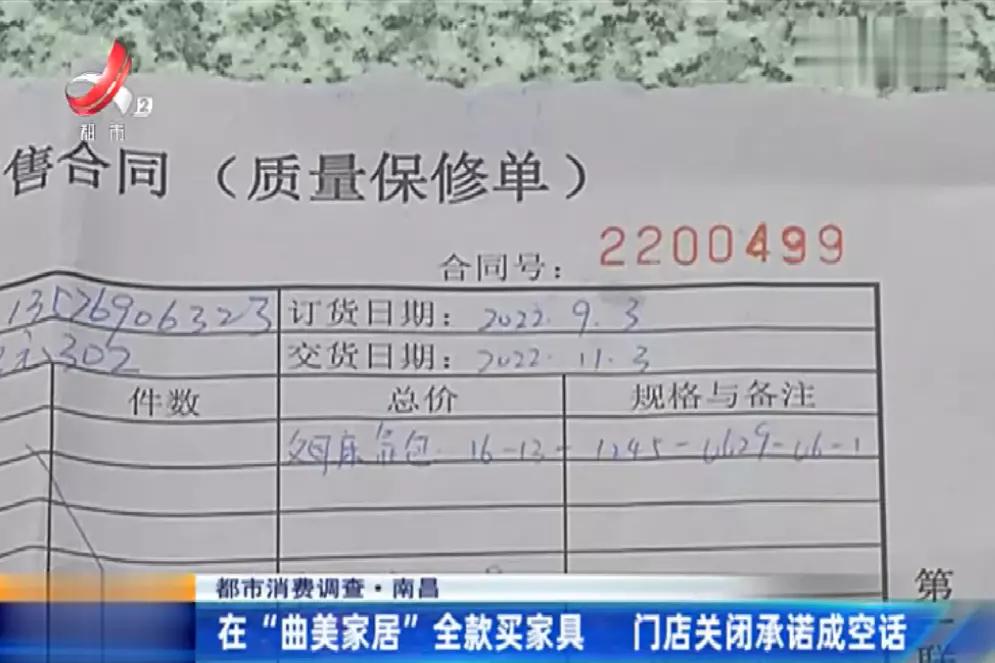 2
都市
售合同（质量保修单）
合同号：2200499
13576906323 订货日期：2022.9.3
302 交货日期：2022.11.3
件数 总价 规格与备注
16-13-1245-6629-66-1
第
都市消费调查·南昌
在“曲美家居”全款买家具 门店关闭承诺成空话
联